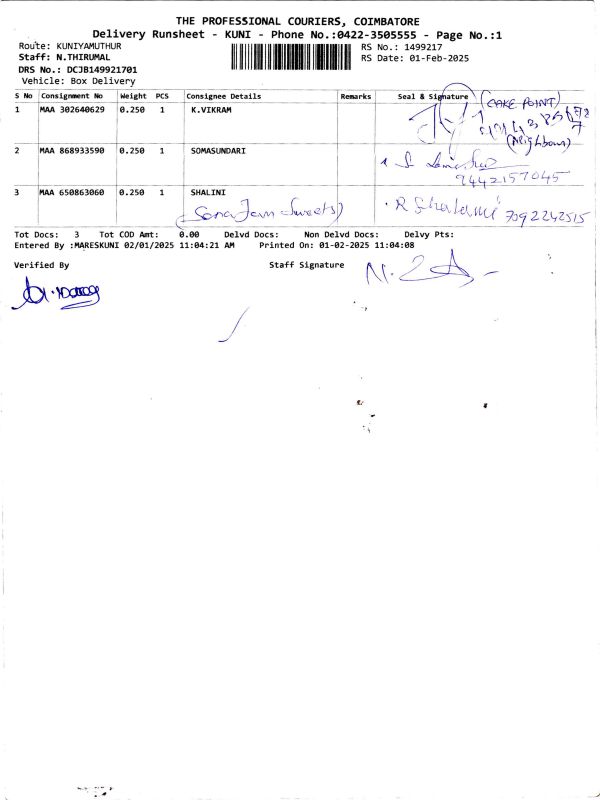 THE PROFESSIONAL COURIERS, COIMBATORE
Delivery Runsheet - KUNI - Phone No.:0422-3505555 - Page No.:1
Route: KUNIYAMUTHUR RS No.: 1499217
Staff: N.THIRUMAL RS Date: 01-Feb-2025
DRS No.: DCJB149921701
Vehicle: Box Delivery
S No Consignment No Weight PCS Consignee Details Remarks Seal & Signature
(CAKE POINT)
1 MAA 302640629 0.250 1 K.VIKRAM
(Neighbour)
2 MAA 868933590 0.250 1 SOMASUNDARI
9442157045
3 MAA 650863060 0.250 1 SHALINI
Sweets) 7092242515
Tot Docs: 3 Tot COD Amt: 0.00 Delvd Docs: Non Delvd Docs: Delvy Pts:
Entered By :MARESKUNI 02/01/2025 11:04:21 AM Printed On: 01-02-2025 11:04:08
Verified By Staff Signature